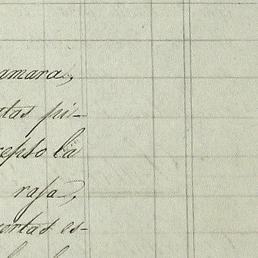 amara,
tas pi-
cepto la
rasa,
ortas es-